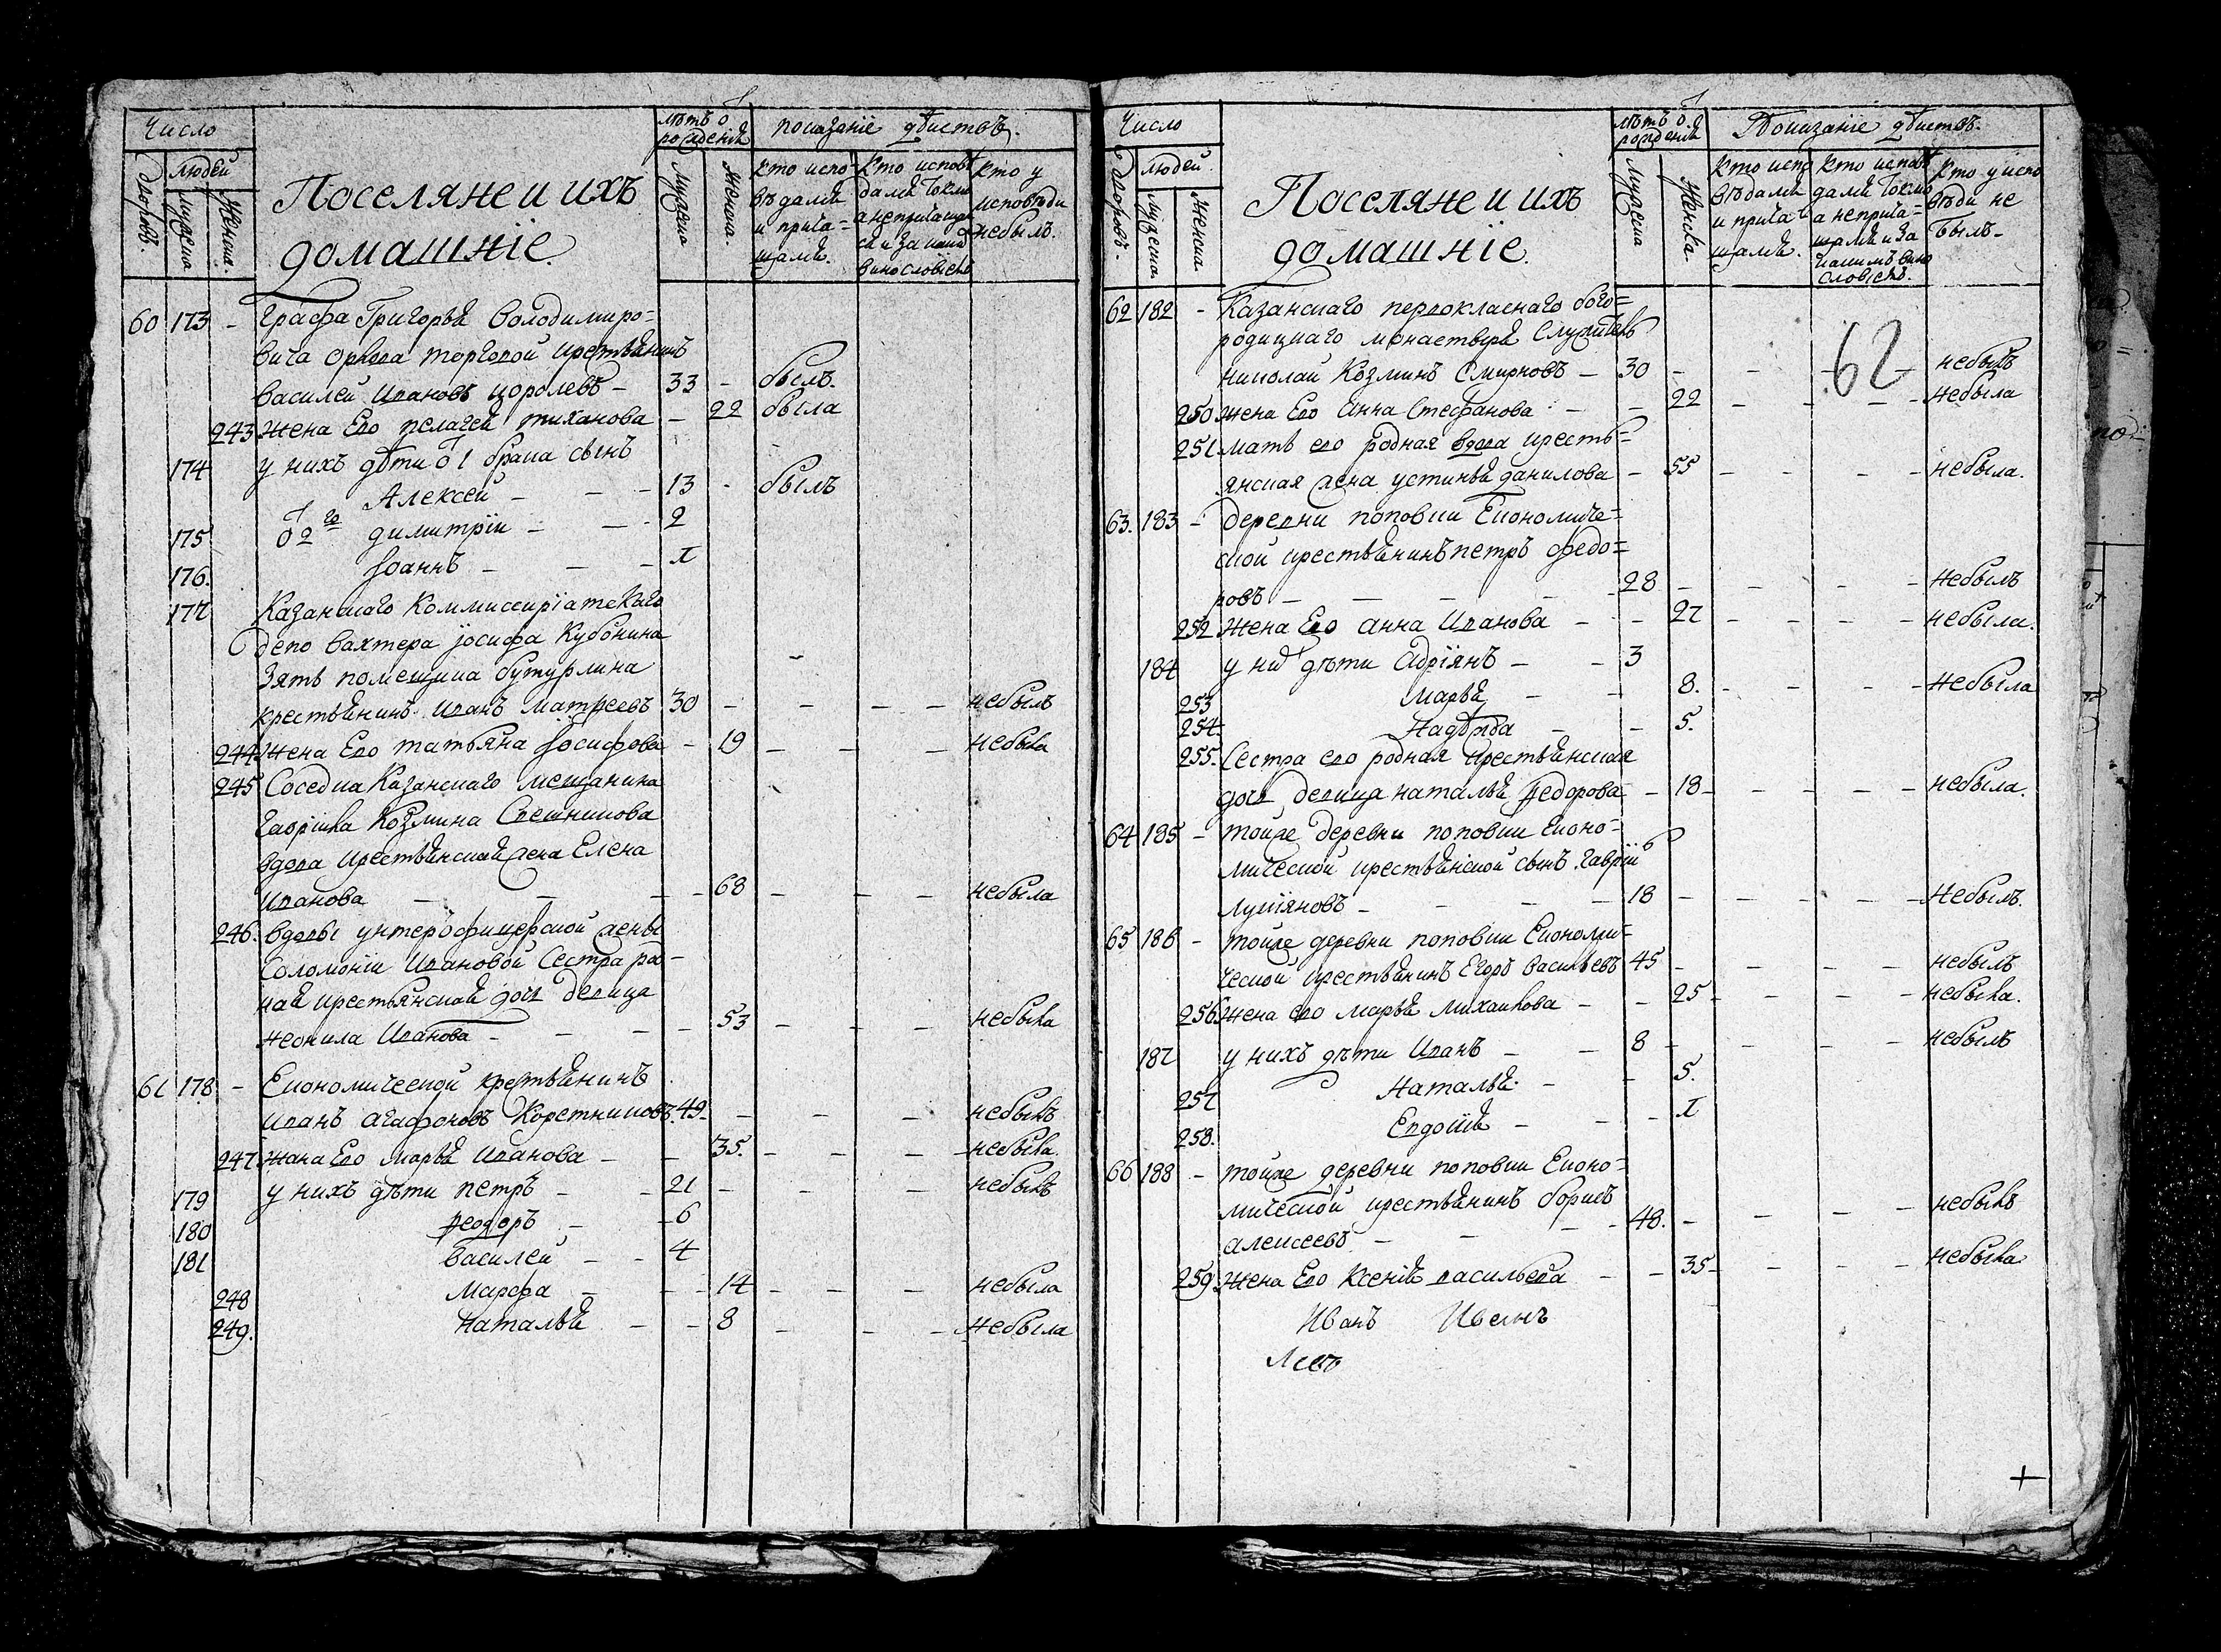 Число
людей
дворовъ.
мужеска
женска.
Поселяне и ихъ
домашніе.
лѣтъ ѿ
рожденія
мужеска
женска.
показаніе дѣйствъ.
кто испо-
вѣдался
и прича=
щался.
кто исповѣ
дался токмо
а непричащал
ся и за каким
винословіемъ
кто у
исповѣди
небылъ.
60 173 - Графа Григорья Володимиро=
вича Орлова торговой крестьянинъ
Василей Ивановъ королевъ - 33 - былъ.
243 жена Его пелагея тиханова - 22 была
174 у нихъ дѣти ѿ 1 брака сынъ
Алексей - - - 13 - былъ
175 ѿ 2го димитріи - - - 2
176. Іоаннъ - - - 1
177 Казанскаго Коммиссиріатскаго
депо вахтера Іосифа Кубонина
Зять помещика бутурлина
крестьянинъ Иванъ матвеевъ 30 - - - - небылъ
244 Жена Его татьяна Іосифова - 19 - - - небыла
245 Соседка Казанскаго мещанина
Гаврила Козмина Свешникова
вдова Крестьянская жена Елена
Иванова - - - - 68 - - - небыла
246. вдовы унтеръофицерской жены
Соломоніи Ивановой Сестра род-
ная крестьянская дочь девица
неонила Иванова - - - - 53 - - - небыла
61 178 - Економической крестьянинъ
Иванъ агафоновъ Коретниковъ. 49 - - - - небылъ
247. Жена Его марья Иванова - - 35. - - - небыла.
179 у нихъ дѣти петръ - - 21 - - - небылъ
180 Ѳеодоръ - - 6
181 Василей - - 4
248 Марфа - - - 14 - - - небыла
249. Наталья - - 8 - - - небыла
Число
людей.
дворовъ.
мужеска.
женска
Поселяне и ихъ
домашніе.
лѣтъ ѿ
рожденія
мужеска
женска.
Показаніе дѣйствъ.
кто испо
вѣдался
и прича
щался.
кто исповѣ
дался токмо
а неприча=
щался и за
какимъ вино
словіемъ.
кто у испо
вѣди не
былъ-
62
62 182 - Казанскаго первокласнаго бого=
родицкаго монастыря Служитель
николай Козминъ Смирновъ - 30 - - - - небылъ
250 жена Его Анна Стефанова - - 22 - - - - небыла
251 мать его родная вдова кресть=
янская жена устинья данилова - 55 - - - - небыла.
63. 183 - деревни поповки Економиче=
ской крестьянинъ петръ федо=
ровъ - - - - - 28 - - - - небылъ
252 Жена Его анна Иванова - - 27 - - - - небыла.
184 у них дѣти Адріянъ - - 3
253 Марья - - 8. - - - - небыла
254. Надѣжда - - 5.
255. Сестра его родная крестьянская
дочь девица наталья Ѳедорова - 18 - - - - небыла.
64 185 - тойже деревни поповки Еконо=
мической крестьянской сынъ Гавріи
лукіяновъ - - - - 18 - - - - небылъ.
65 186 - тойже деревни поповки Економи=
ческой крестьянинъ Егоръ васильевъ 45 - - - - небылъ
256. Жена его марья михаилова - - 25 - - - - небыла.
187 у нихъ дѣти Иванъ - - 8 - - - - небылъ
257 Наталья. - - 5.
258. Евдокія - - - 1
66 188 - тойже деревни поповки Еконо=
мической крестьянинъ борисъ
алексеевъ - - - - 48. - - - - небылъ
259. Жена Его Ксенія васильева - - 35 - - - - небыла
Иванъ